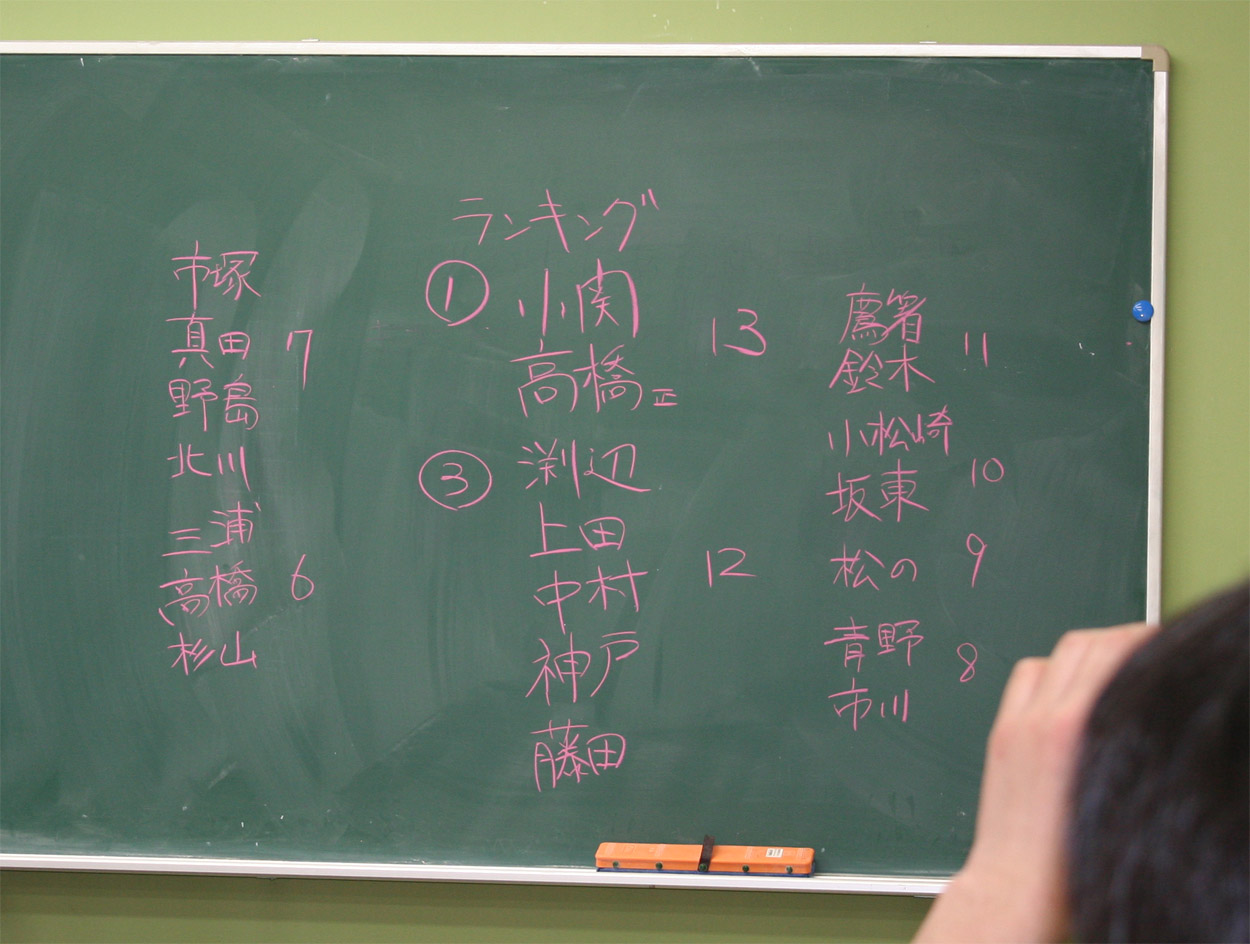 ランキング
① 小関
高橋正
13
③ 渕辺
上田
中村
12
神戸
藤田
鷹箸
鈴木
11
小松崎
坂東
10
松の 9
青野
市川
8
市塚
真田
野島
北川
7
三浦
高橋
杉山
6